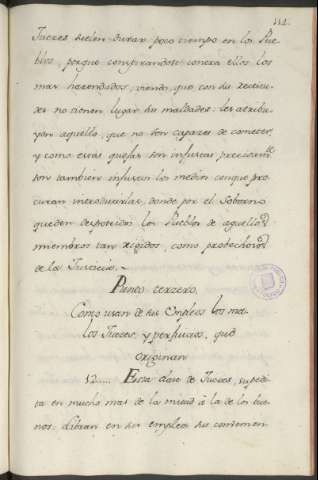 112.
Jueces suelen durar poco tiempo en los Pue-
blos, porque conspirandose contra ellos los
mas hazendados, viendo, que con su rectitu-
des no tienen lugar sus maldades: les atribu-
yen aquello, que no son capaces de cometer,
y como estas quejas son injustas, preciosam.te
son tambien injustos los medios conque pro-
curan introducirlas, donde por el Soberano
queden desposeidos los Pueblos de aquellos
miembros tan rigidos, como provechosos
de la Justicia.
Punto terzero,
Como usan de sus Empleos los ma-
los Jueces, y perjuicios, que
originan
Esta clase de Jueces, supedi-
ta en mucho mas de la mitad â la de los bue-
nos: libran en su empleo su comemen-